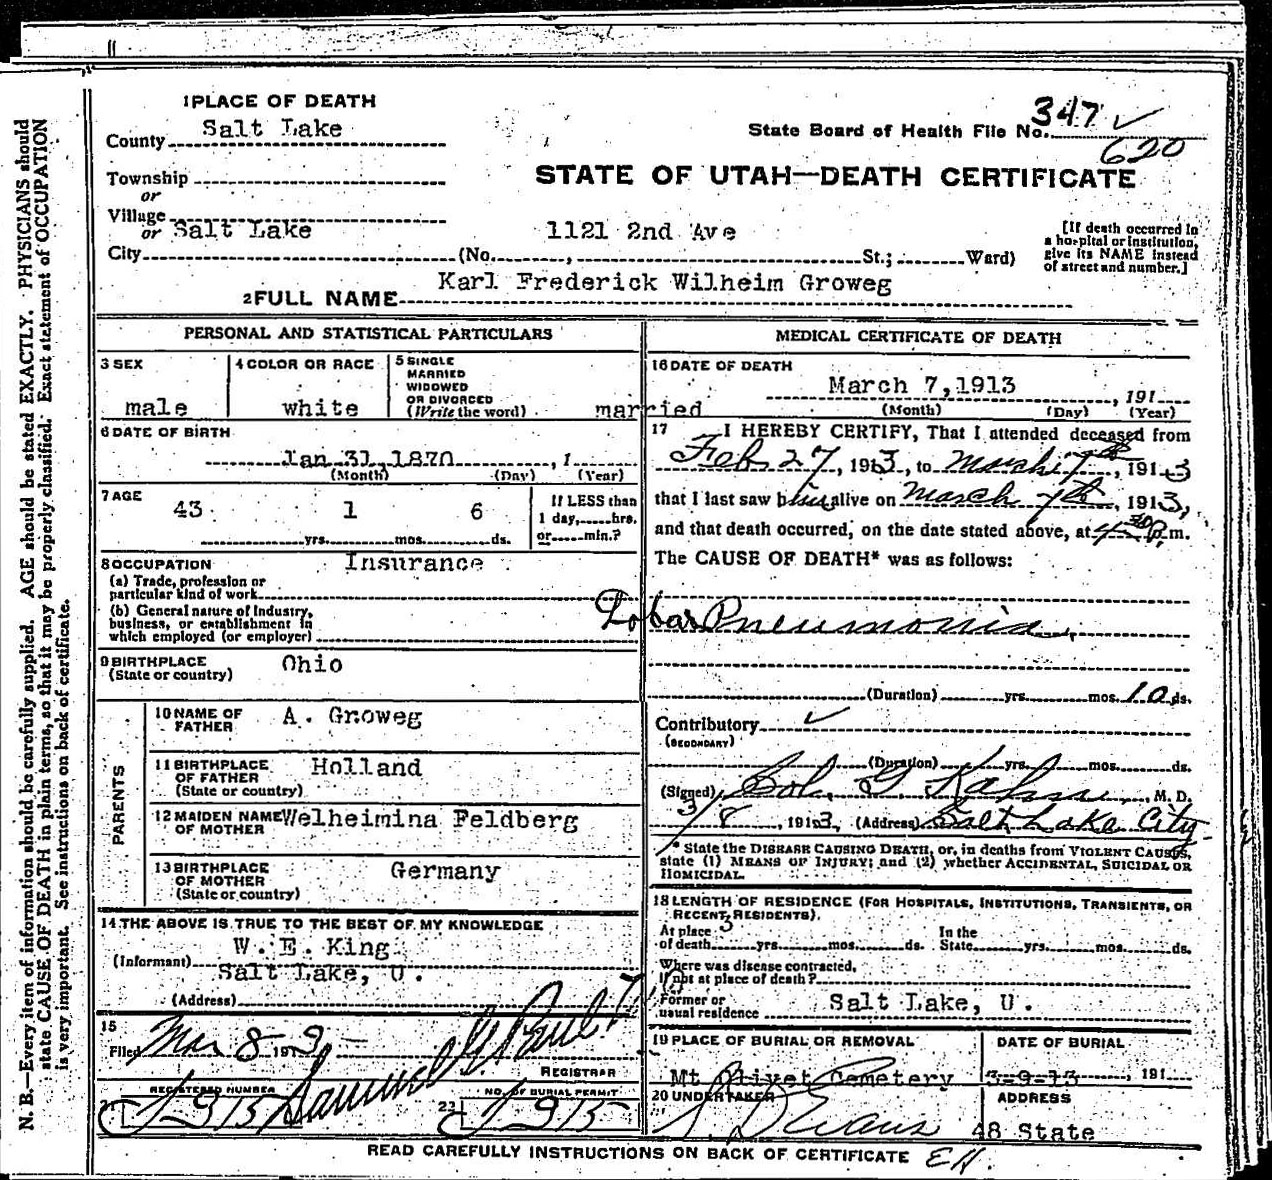 1 PLACE OF DEATH
County Salt Lake
State Board of Health File No. 347 ✓
620
Township
or
Village
or Salt Lake
City
STATE OF UTAH—DEATH CERTIFICATE
1121 2nd Ave
(No. , St.; Ward)
[If death occurred in
a hospital or institution,
give its NAME instead
of street and number.]
2 FULL NAME Karl Frederick Wilheim Groweg
PERSONAL AND STATISTICAL PARTICULARS
3 SEX
male
4 COLOR OR RACE
white
5 SINGLE
MARRIED
WIDOWED
OR DIVORCED
(Write the word) married
6 DATE OF BIRTH
Jan 31, 1870 , 1
(Month) (Day) (Year)
7 AGE
43 yrs. 1 mos. 6 ds.
If LESS than
1 day, hrs.
or min.?
8 OCCUPATION Insurance
(a) Trade, profession or
particular kind of work
(b) General nature of Industry,
business, or establishment in
which employed (or employer)
9 BIRTHPLACE Ohio
(State or country)
PARENTS
10 NAME OF
FATHER A. Groweg
11 BIRTHPLACE
OF FATHER Holland
(State or country)
12 MAIDEN NAME
OF MOTHER Welheimina Feldberg
13 BIRTHPLACE
OF MOTHER Germany
(State or country)
14 THE ABOVE IS TRUE TO THE BEST OF MY KNOWLEDGE
(Informant) W. E. King
Salt Lake, U.
(Address)
15
Filed Mar 8- 191
REGISTRAR
REGISTERED NUMBER
21 1915
NO. OF BURIAL PERMIT
22 1915
MEDICAL CERTIFICATE OF DEATH
16 DATE OF DEATH
March 7, 1913 , 191
(Month) (Day) (Year)
17 I HEREBY CERTIFY, That I attended deceased from
Feb 27, 1913, to March 7th, 1913
that I last saw him alive on March 7th, 1913,
and that death occurred, on the date stated above, at 4 30 P. m.
The CAUSE OF DEATH* was as follows:
Lobar Pneumonia
(Duration) yrs. mos. 10 ds.
Contributory ✓
(SECONDARY)
(Duration) yrs. mos. ds.
(Signed) Sol. G. Kahn, M. D.
3/8, 1913, (Address) Salt Lake City
* State the DISEASE CAUSING DEATH, or, in deaths from VIOLENT CAUSES,
state (1) MEANS OF INJURY; and (2) whether ACCIDENTAL, SUICIDAL OR
HOMICIDAL.
18 LENGTH OF RESIDENCE (FOR HOSPITALS, INSTITUTIONS, TRANSIENTS, OR
RECENT RESIDENTS).
At place In the
of death yrs. mos. ds. State yrs. mos. ds.
Where was disease contracted,
If not at place of death?
Former or
usual residence Salt Lake, U.
19 PLACE OF BURIAL OR REMOVAL
Mt Olivet Cemetery
DATE OF BURIAL
3-9-13 , 191
20 UNDERTAKER
S. D Evans
ADDRESS
48 State
READ CAREFULLY INSTRUCTIONS ON BACK OF CERTIFICATE EH.
N. B.—Every item of information should be carefully supplied. AGE should be stated EXACTLY. PHYSICIANS should
state CAUSE OF DEATH in plain terms, so that it may be properly classified. Exact statement of OCCUPATION
is very important. See instructions on back of certificate.